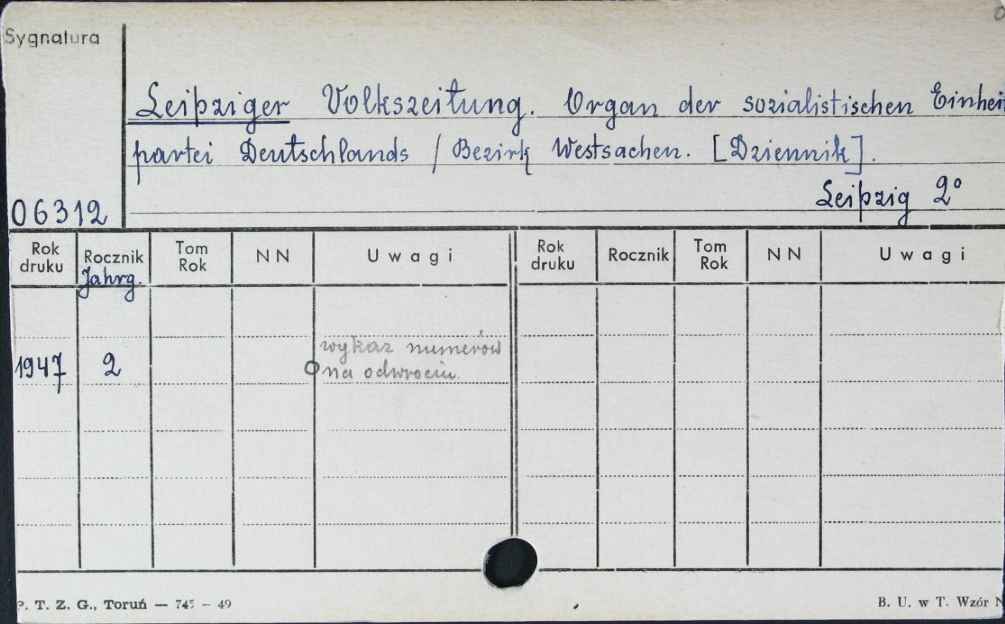 Sygnatura
Leipziger Volkszeitung. Organ der sozialistischen Einhei
partei Deutschlands / Bezirk Westsachen. [Dziennik].
Leipzig 2°
06312
Rok druku Rocznik Tom Rok NN Uwagi Rok druku Rocznik Tom Rok NN Uwagi
Jahrg.
wykaz numerów
1947 2 na odwrociu.
P. T. Z. G., Toruń — 745 — 49 B. U. w T. Wzór N